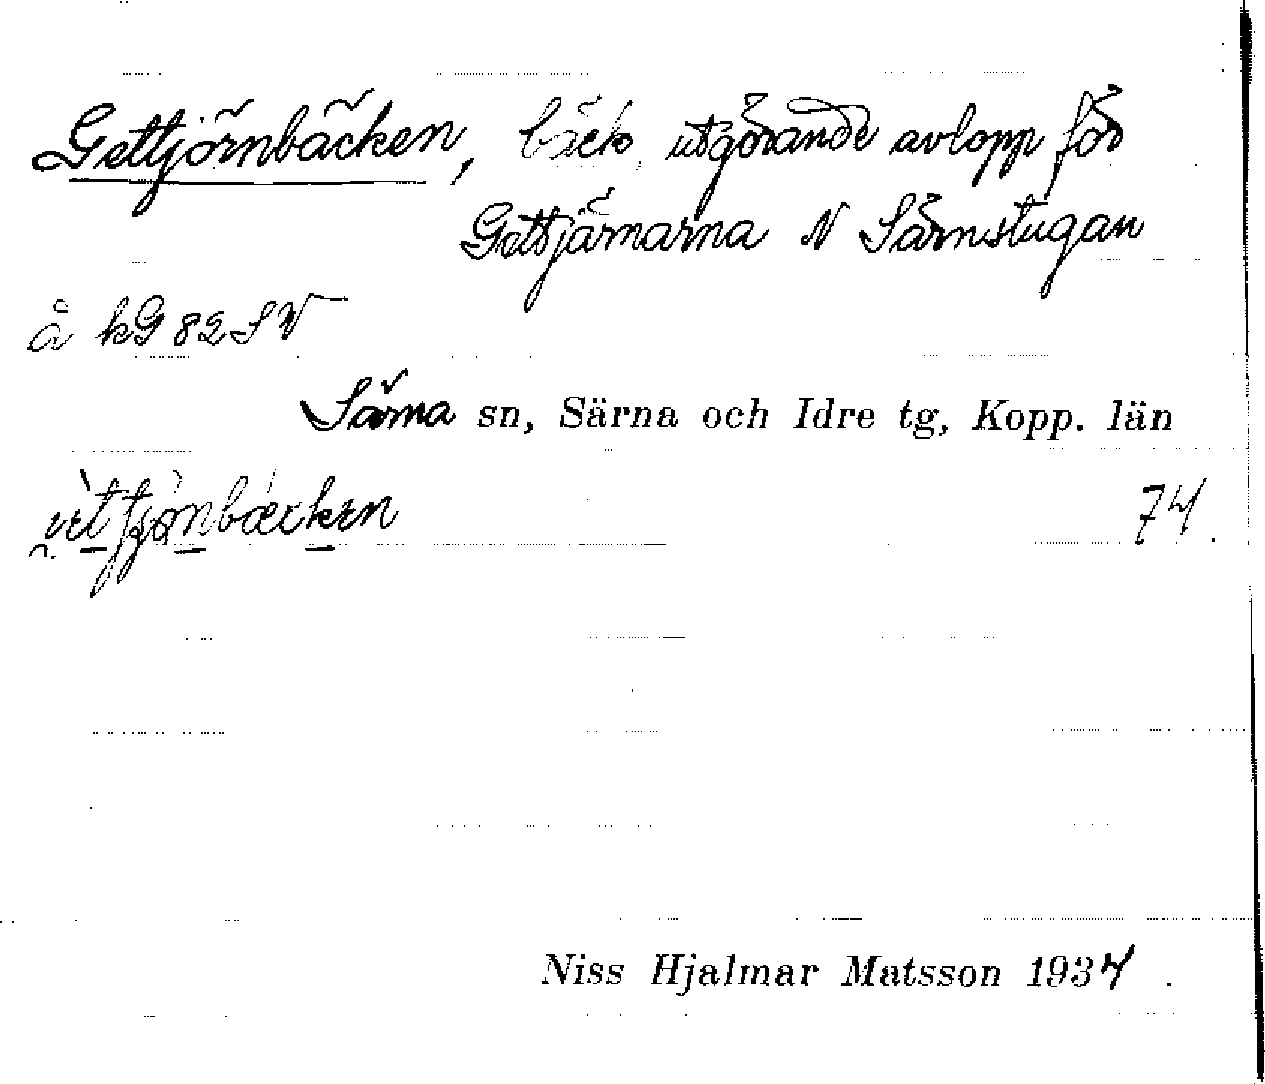 Gettjörnbäcken, bäck, utgörande avlopp för
Gettjärnarna N Särnstugan
å kG 82 SV
Särna sn, Särna och Idre tg, Kopp. län
74.
Niss Hjalmar Matsson 1934.